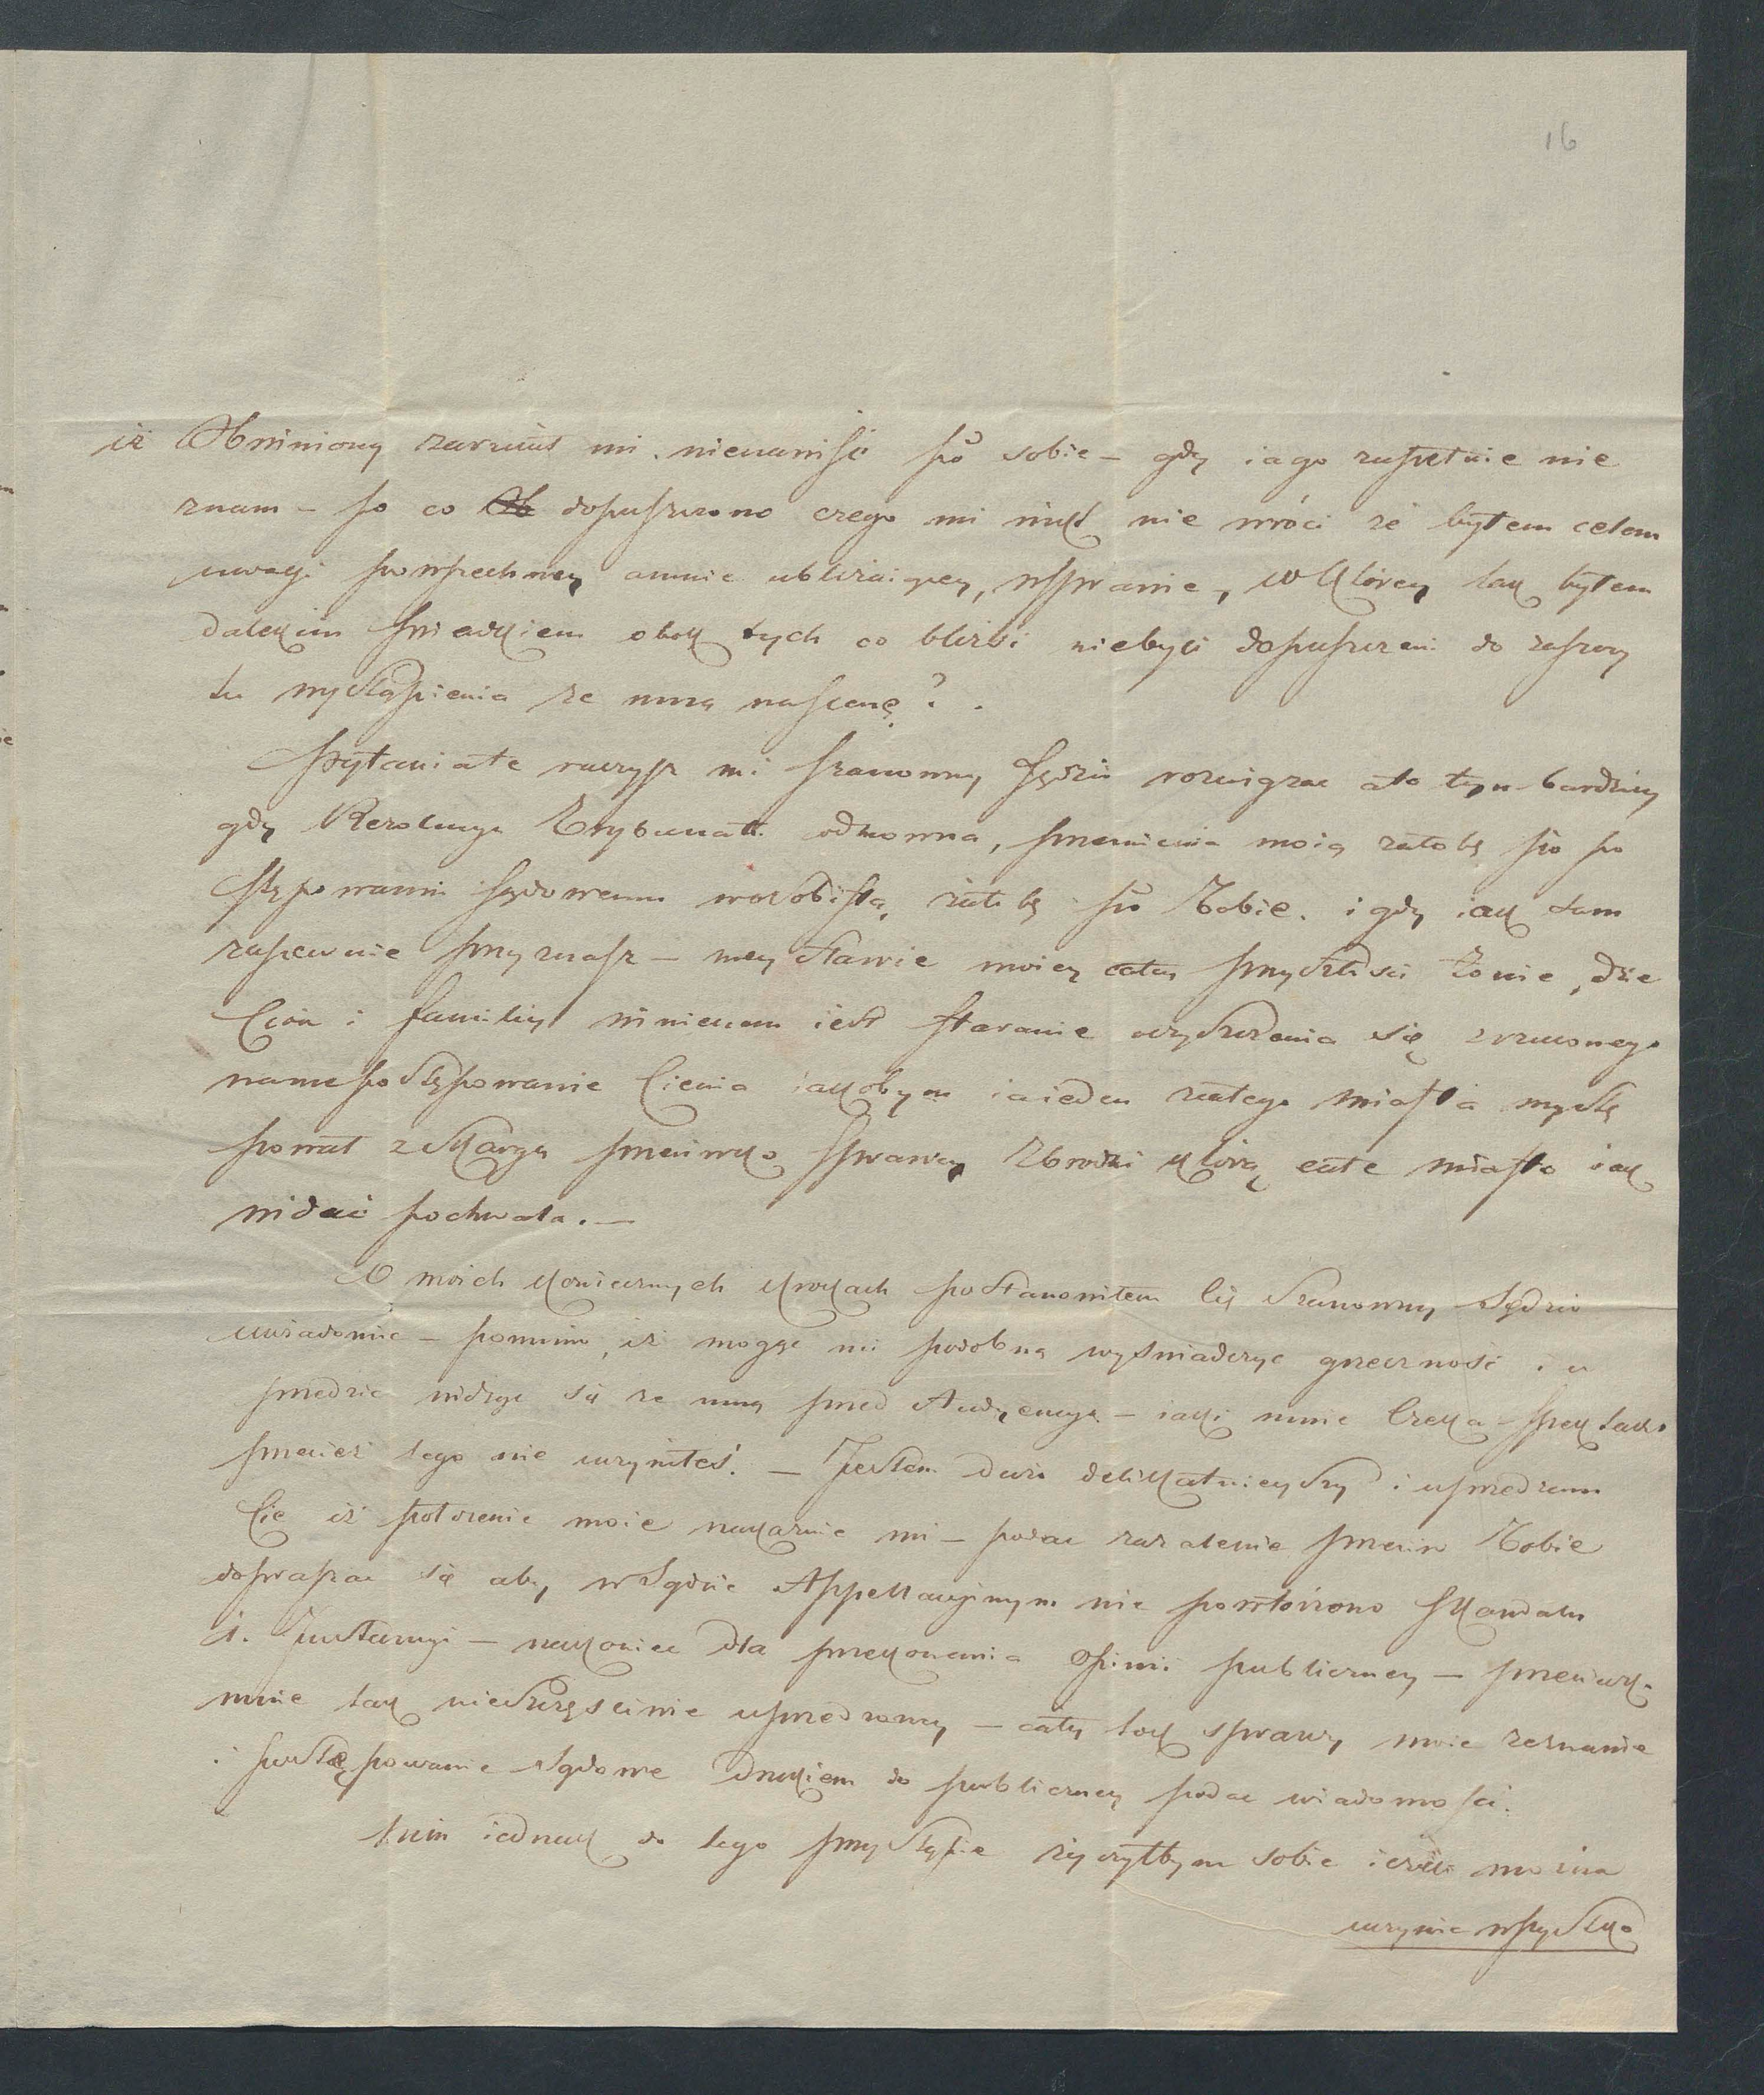 16
iż Obwiniony zarzuca mi nienawiść ku sobie – gdy iago zupełnie nie
znam – po co dopuszczono czego mi nikt nie wróci że byłem celem
uwagi powszechney amnie ubliżaiącey, wsprawie, wktórey tak byłem
dalekim świadkiem obok tych co bliżsi niebyli dopuszczeni do zaszczy
tu wystąpienia ze mną nascenę?.
Pytania te raczysz mi szanowny Sędzio rozwiązać ato tym bardziey
gdy Rezolucya Trybunału odmowna, przemienia moią żałobę po
stępowaniu sądowemu wosobistą żałobę Tobie. i gdy iak sam
zapewnie przyznasz – mey sławie moiey całey przyszłości żonie, dzie
ciom i familiy winienem iest staranie oczyszczenia się zrzuconego
namepostępowanie cienia iakobym iaieden zcałego miasta wystę
pował zskargą przeciwko sprawcy Zbrodni którą całe miasto iak
widać pochwala. –
O moich koniecznych krokach postanowiłem Cię Szanowny Sędzio
uwiadomić – pomimo, iż mogąc mi podobną wyświadczyć grzeczność i u
przedzić widząc się ze mną przed Audyencyą – iaki mnie czeka – spektakl
przecież tego nie uczyniłeś. – Jestem dużo delikatnieyszy i uprzedzam
Cię iż położenie moie nakazuie mi – podać zażalenie przeciw Tobie
dopraszać się aby wSądzie Appellacyjnym nie powtórzono skandalu
1. Instancyi – nakoniec dla przekonania Opinii publiczney – przeciwko
mnie tak nieszczęśliwie uprzedzoney – cały tok sprawy moie zeznanie
i postępowanie sądowe drukiem do publiczney podać wiadomości.
Nim iednak do tego przystąpię życzyłbym sobie ieżeli można
uczynić wszystko